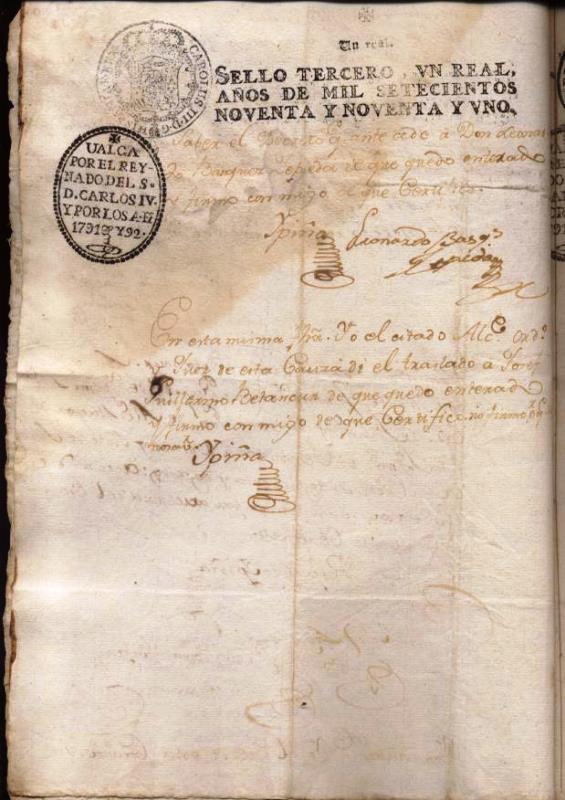 Un real.
SELLO TERCERO, VN REAL,
AÑOS DE MIL SETECIENTOS
NOVENTA Y NOVENTA Y VNO.
CAROLUS III D G
UALGA
POR EL REY-
NADO DEL S.
D. CARLOS IV.
Y POR LOS A.
1791 Y 92.
saver el Decreto q ante cede a Don Leonar
do Basquez Sepeda de que quedo enterado
y firmo con migo de que Certifico.
Ypiña Leonardo Basqs
Sepeda
En esta misma fha. Yo el citado Alce. Ordo.
y Juez de esta Cauza di el traslado a Josef
Guillermo Betancur de que quedo enterado
y firmo con migo de que Certifico. no firmo
Ypiña